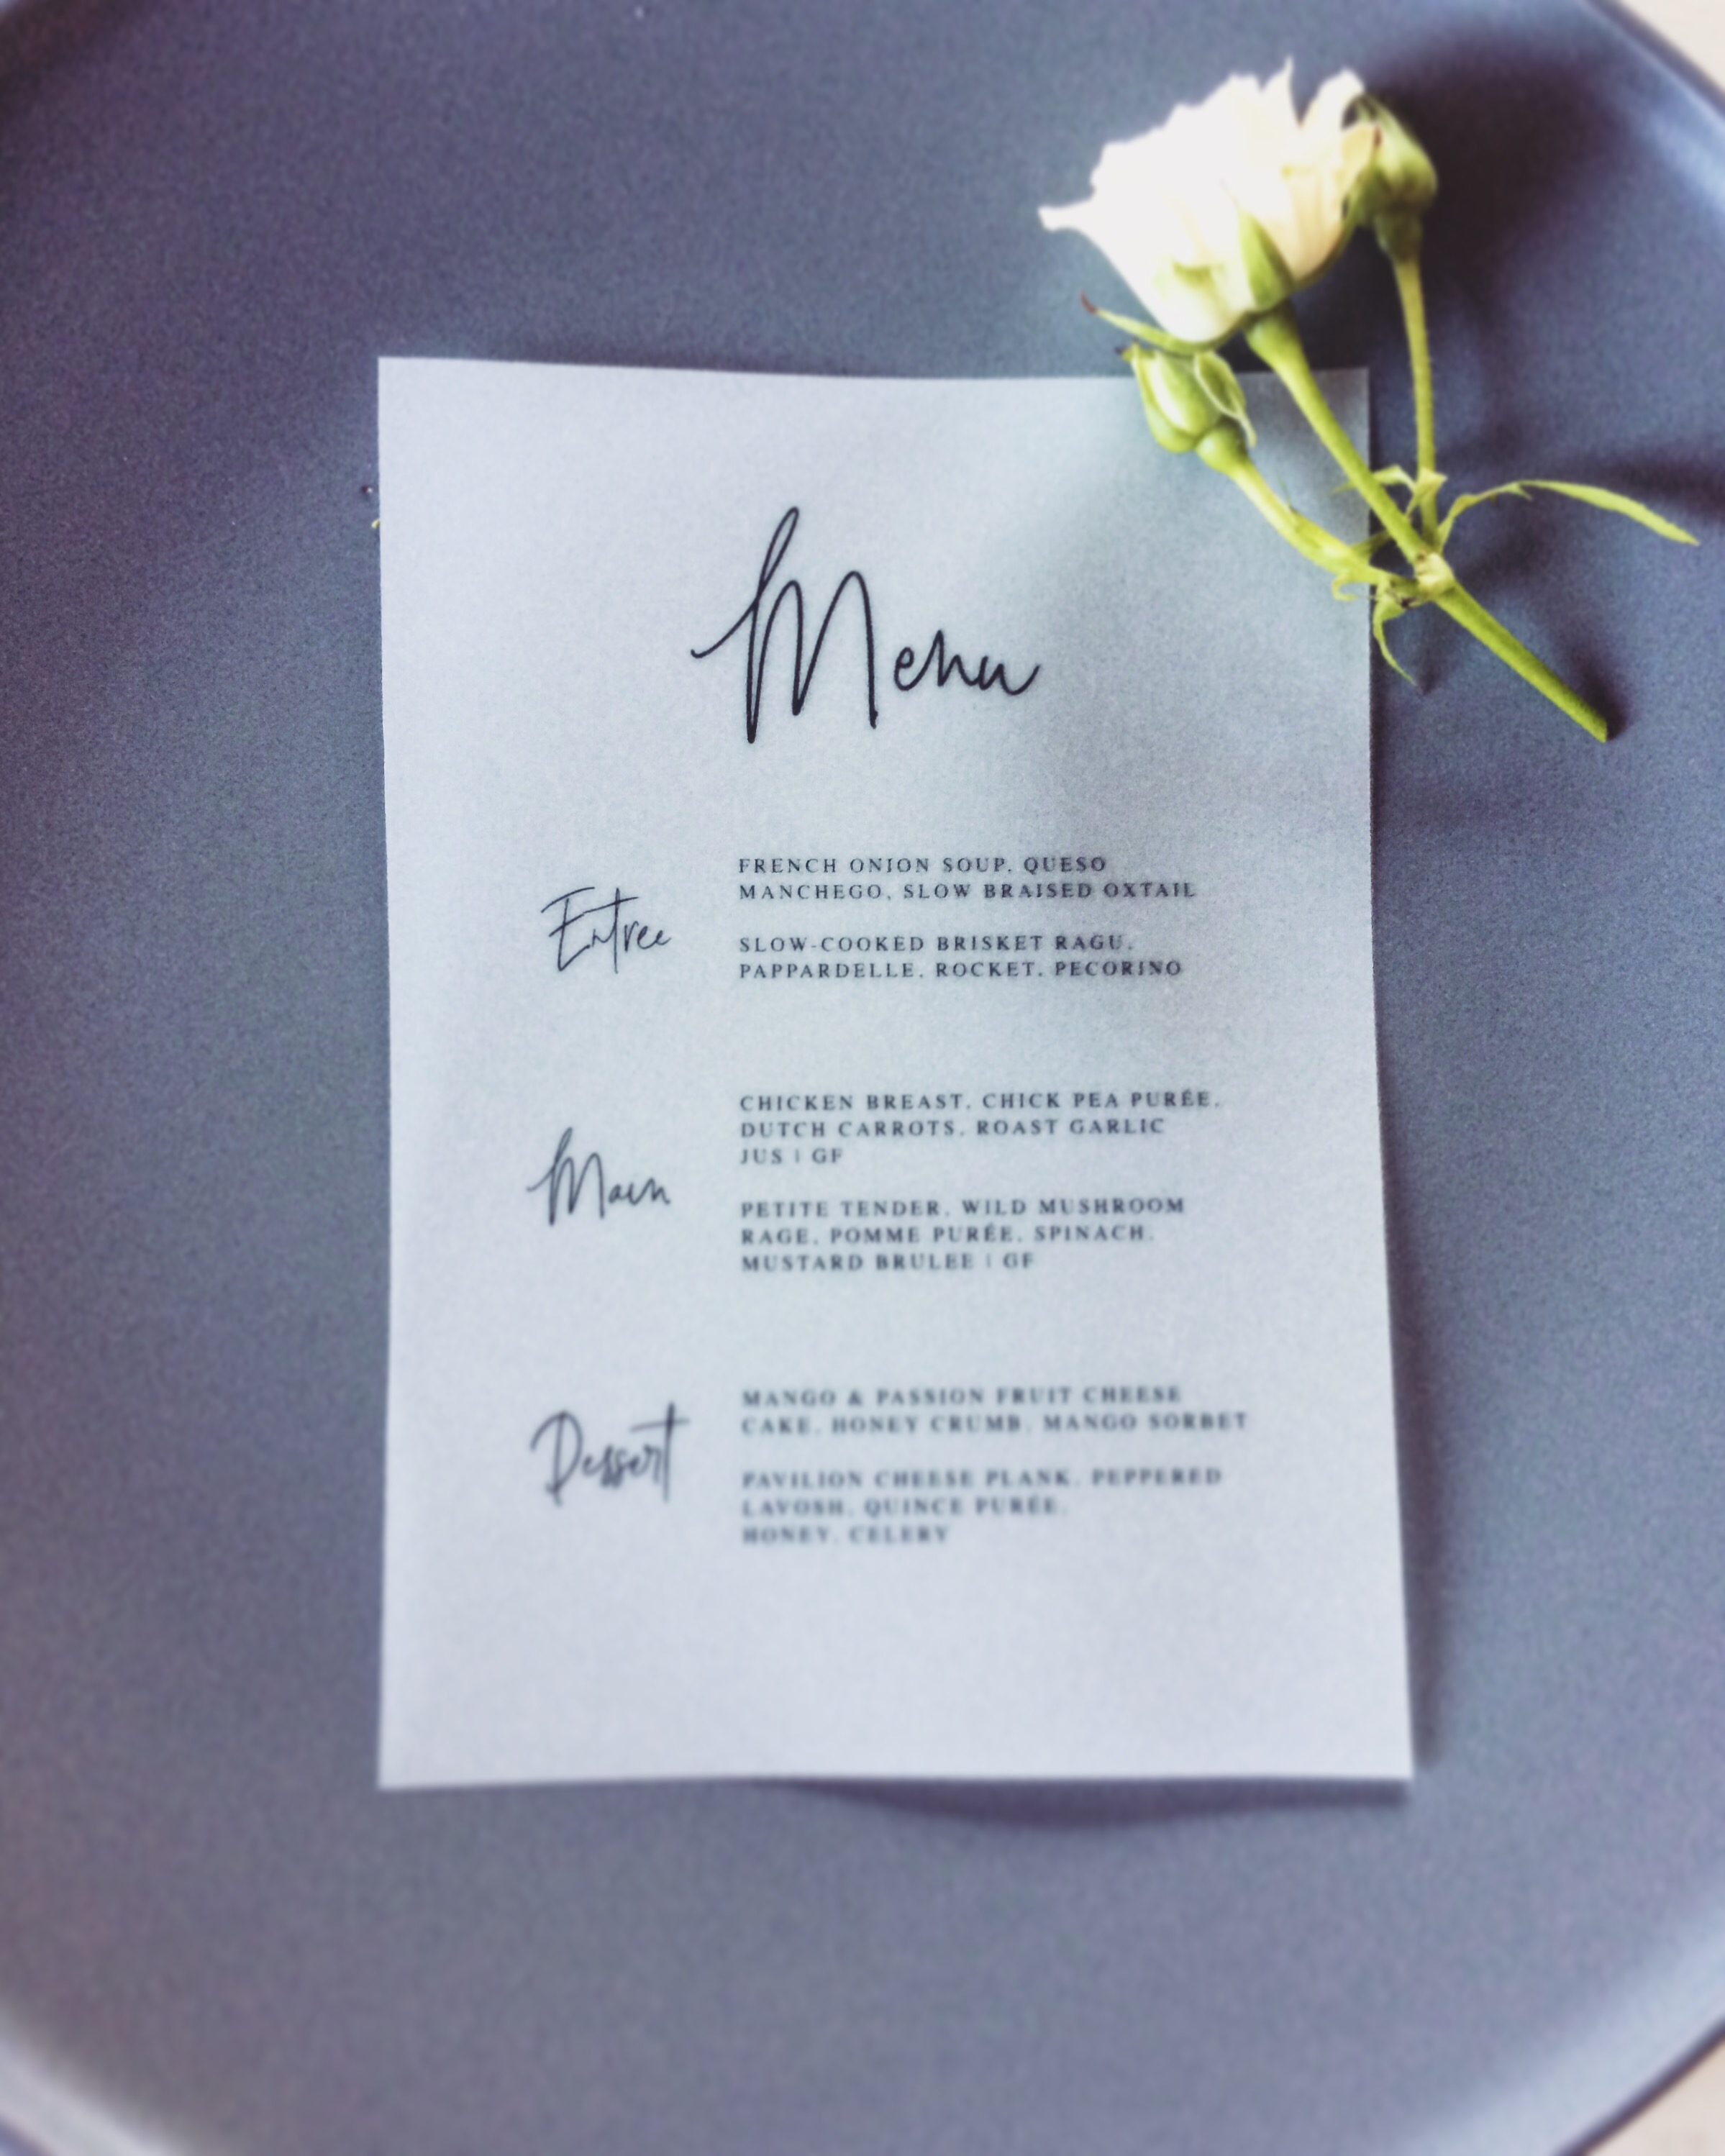 Menu
Entree
FRENCH ONION SOUP, QUESO
MANCHEGO, SLOW BRAISED OXTAIL
SLOW-COOKED BRISKET RAGU,
PAPPARDELLE, ROCKET, PECORINO
Main
CHICKEN BREAST, CHICK PEA PURÉE,
DUTCH CARROTS, ROAST GARLIC
JUS | GF
PETITE TENDER, WILD MUSHROOM
RAGE, POMME PURÉE, SPINACH,
MUSTARD BRULEE | GF
Dessert
MANGO & PASSION FRUIT CHEESE
CAKE, HONEY CRUMB, MANGO SORBET
PAVILION CHEESE PLANK, PEPPERED
LAVOSH, QUINCE PURÉE,
HONEY, CELERY